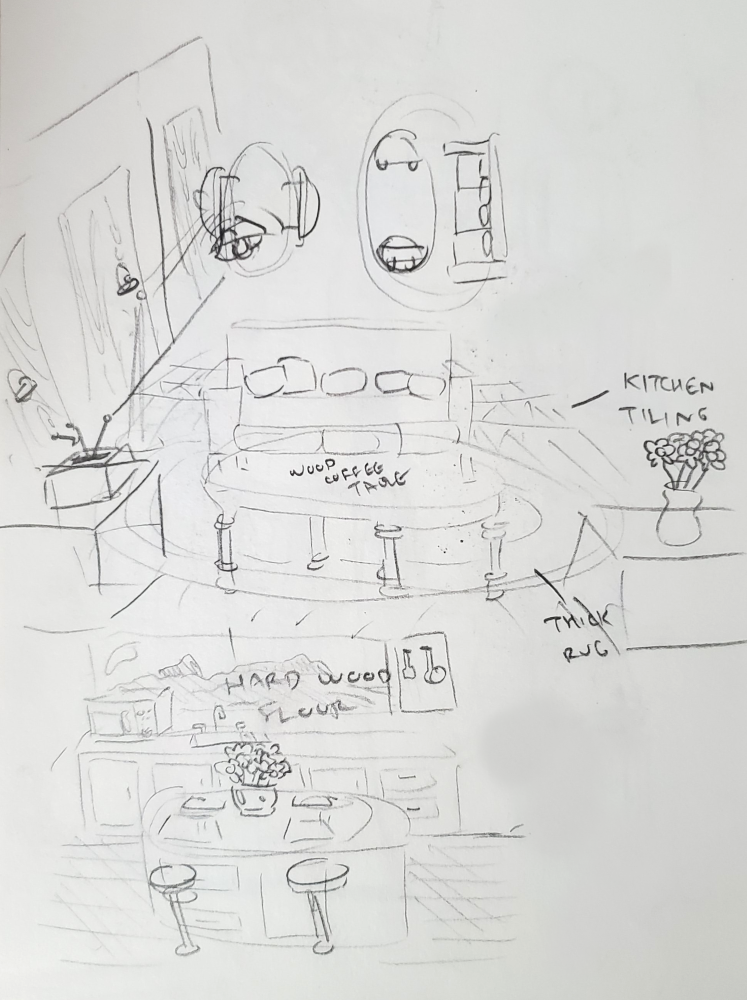 KITCHEN
TILING
WOOD
COFFEE
TABLE
THICK
RUG
HARD WOOD
FLOUR